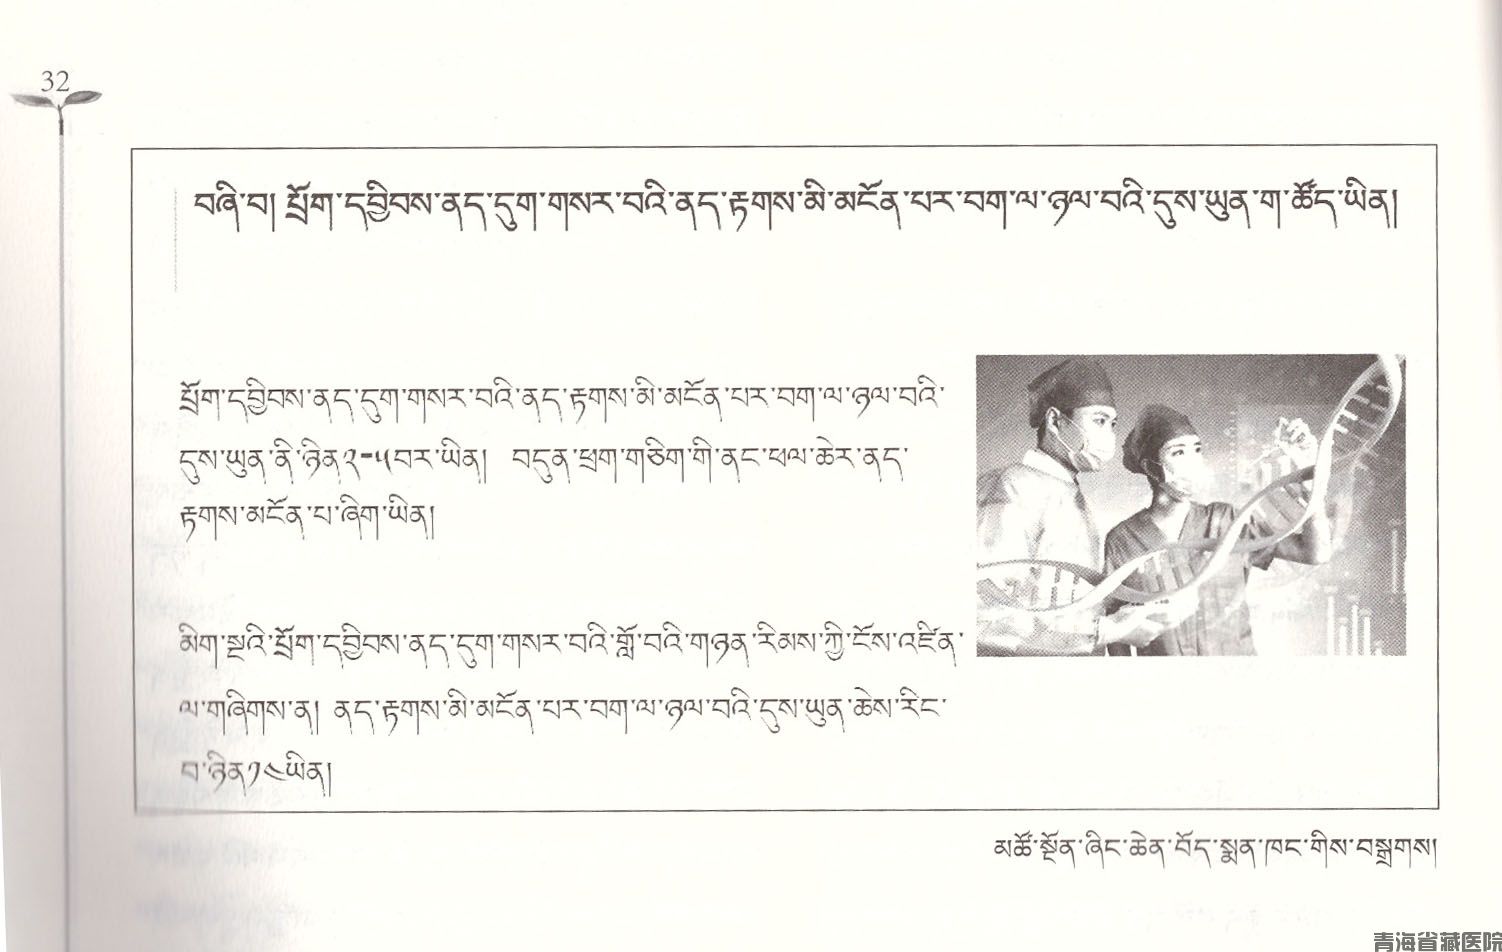 32
བཞི་བ། པྲོག་དབྱིབས་ནད་དུག་གསར་བའི་ནད་རྟགས་མི་མངོན་པར་བག་ལ་ཉལ་བའི་དུས་ཡུན་ག་ཚོད་ཡིན།
པྲོག་དབྱིབས་ནད་དུག་གསར་བའི་ནད་རྟགས་མི་མངོན་པར་བག་ལ་ཉལ་བའི་
དུས་ཡུན་ནི་ཉིན༢-༥བར་ཡིན། བདུན་ཕྲག་གཅིག་གི་ནང་ཕལ་ཆེར་ནད་
རྟགས་མངོན་པ་ཞིག་ཡིན།
མིག་སྔའི་པྲོག་དབྱིབས་ནད་དུག་གསར་བའི་གློ་བའི་གཉན་རིམས་ཀྱི་ངོས་འཛིན་
ལ་གཞིགས་ན། ནད་རྟགས་མི་མངོན་པར་བག་ལ་ཉལ་བའི་དུས་ཡུན་ཆེས་རིང་
བ་ཉིན༡༤ཡིན།
མཚོ་སྔོན་ཞིང་ཆེན་བོད་སྨན་ཁང་གིས་བསྒྲགས།
青海省藏医院